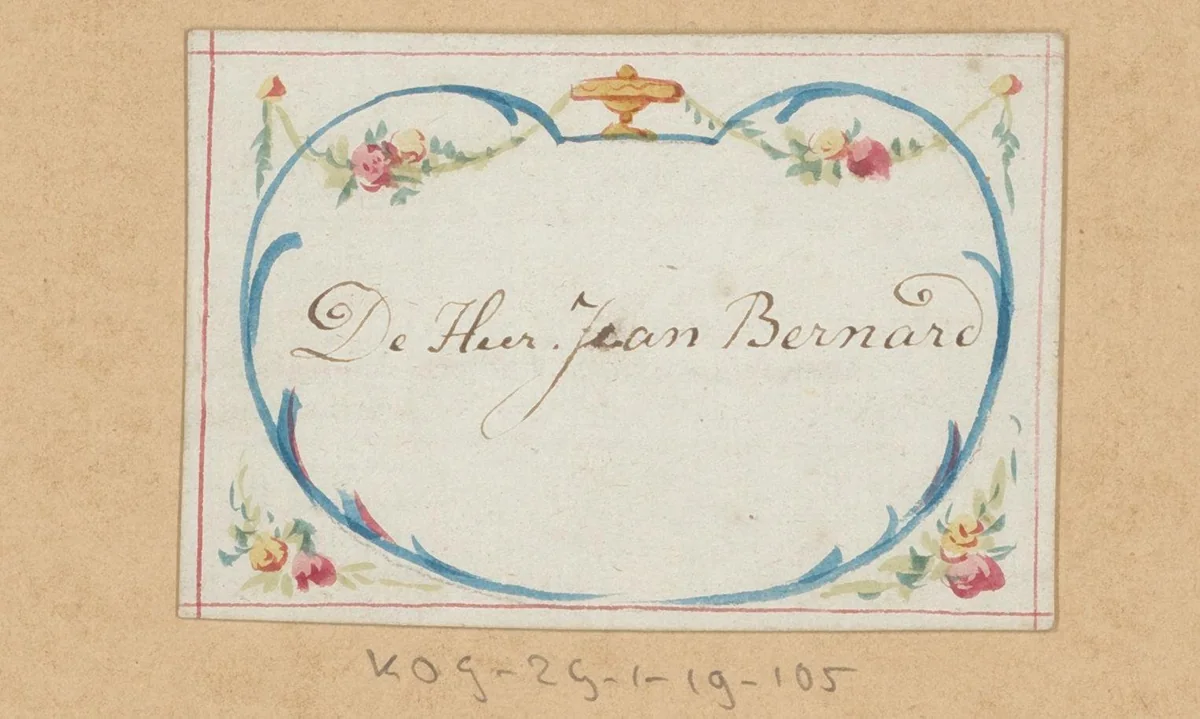 De Heer. Jean Bernard
KOG-ZG-1-19-105